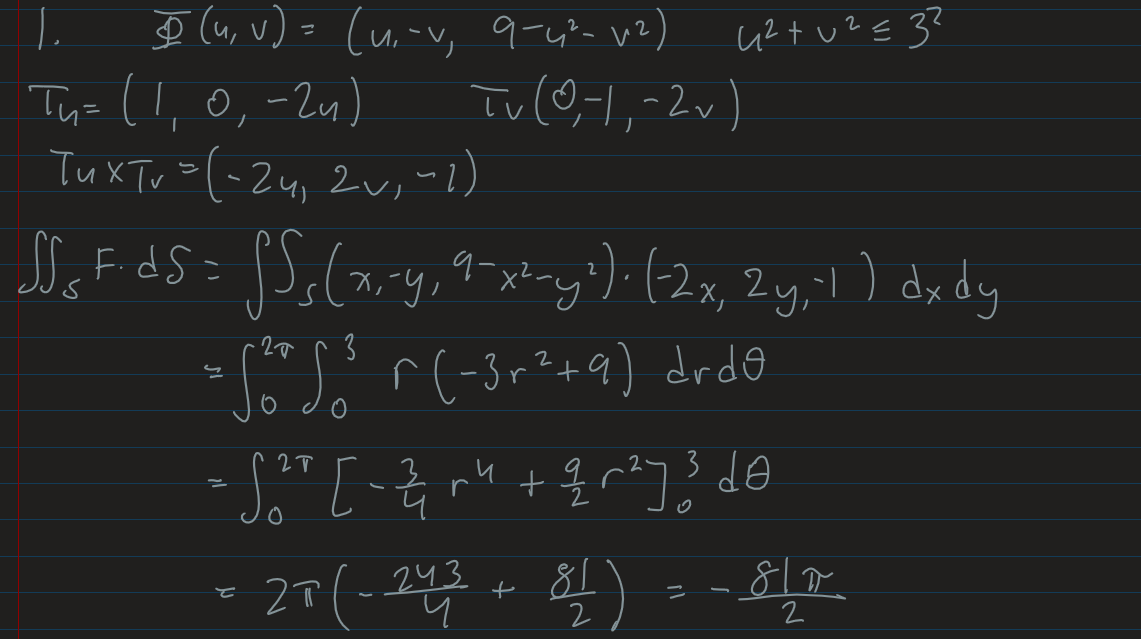 1. Φ(u, v) = (u, -v, 9-u²-v²) u²+v² ≤ 3²
Tu = (1, 0, -2u) Tv(0,-1,-2v)
Tu×Tv = (-2u, 2v, -1)
∬_S F·dS = ∬_S (x,-y, 9-x²-y²)·(-2x, 2y,-1) dxdy
= ∫₀^2π ∫₀^3 r(-3r²+9) drdθ
= ∫₀^2π [-3/4 r⁴ + 9/2 r²]₀³ dθ
= 2π(-243/4 + 81/2) = -81π/2